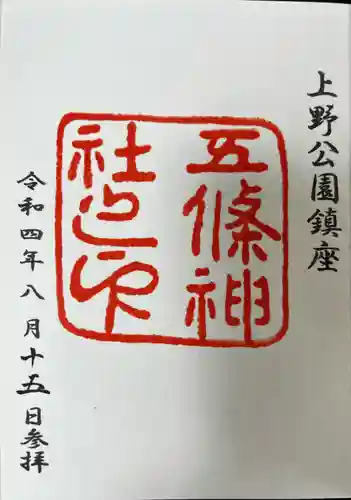 上野公園鎮座
五條神
社之印
令和四年八月十五日参拝